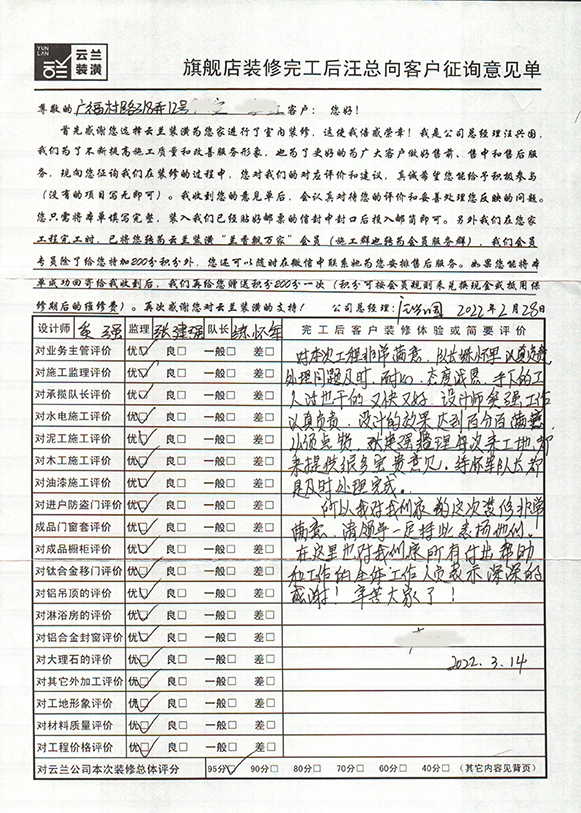 YUN LAN 云兰装潢
旗舰店装修完工后汪总向客户征询意见单
尊敬的 广福村路318弄12号 客户： 您好！
首先感谢您选择云兰装潢为您家进行了室内装修，这使我倍感荣幸！我是公司总经理汪兴国，
我们为了不断提高施工质量和改善服务形象，也为了更好的为广大客户做好售前、售中和售后服
务，现向您征询我们在装修的过程中，您对我们的对应评价和建议，真诚希望您能给予积极参与
（没有的项目写无即可）。我收到您的意见单后，会认真对待您的评价和妥善处理您反映的问题。
您只需将本单填写完整，装入我们已经贴好邮票的信封中封口后投入邮筒即可。另外我们在您家
工程完工时，已将您转为云兰装潢“兰香飘万家”会员（施工群也转为会员服务群），我们会员
专员除了给您特加200分积分外，您还可以随时在微信中联系她为您安排售后服务。如果您能将本
单成功回寄给我收到后，我们再给您赠送积分200分一次（积分可按会员规则来兑换现金或抵用保
修期后的维修费）。再次感谢您对云兰装潢的支持！ 公司总经理： 2022年2月28日
设计师 奚强 监理 张建强 队长 练怀军 完工后客户装修体验或简要评价
对业务主管评价 优☑ 良□ 一般□ 差□ 对本次工程非常满意，队长练怀军认真负责
对施工监理评价 优☑ 良□ 一般□ 差□ 处理问题及时，耐心，态度诚恳，手下的工
对承揽队长评价 优☑ 良□ 一般□ 差□ 人过也干的又快又好。设计师奚强工作
对水电施工评价 优☑ 良□ 一般□ 差□ 认真负责，设计的效果达到百分百满意，
对泥工施工评价 优☑ 良□ 一般□ 差□ 必须点赞，张建强监理每次来工地都
对木工施工评价 优☑ 良□ 一般□ 差□ 来提供很多宝贵意见。练怀军队长都
对油漆施工评价 优☑ 良□ 一般□ 差□ 是及时处理完成。
对进户防盗门评价 优☑ 良□ 一般□ 差□ 所以我对我们家的这次装修非常
成品门窗套评价 优☑ 良□ 一般□ 差□ 满意，请领导一定特此表扬他们！
对成品橱柜评价 优☑ 良□ 一般□ 差□ 在这里也对我们家所有付出帮助
对钛合金移门评价 优☑ 良□ 一般□ 差□ 和工作的全体工作人员表示深深的
对铝吊顶的评价 优☑ 良□ 一般□ 差□ 感谢！辛苦大家了！
对淋浴房的评价 优☑ 良□ 一般□ 差□
对铝合金封窗评价 优☑ 良□ 一般□ 差□
对大理石的评价 优☑ 良□ 一般□ 差□ 2022.3.14
对其它外加工评价 优☑ 良□ 一般□ 差□
对工地形象评价 优☑ 良□ 一般□ 差□
对材料质量评价 优☑ 良□ 一般□ 差□
对工程价格评价 优☑ 良□ 一般□ 差□
对云兰公司本次装修总体评分 95分☑ 90分□ 80分□ 70分□ 60分□ 40分□ （其它内容见背页）